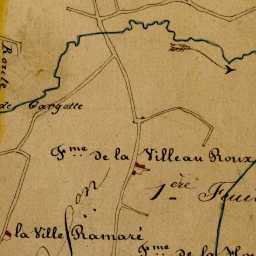 Route
de Gargotte
Fme de la Ville au Roux
1ère Feui
la Ville Ramaré
Fme de la